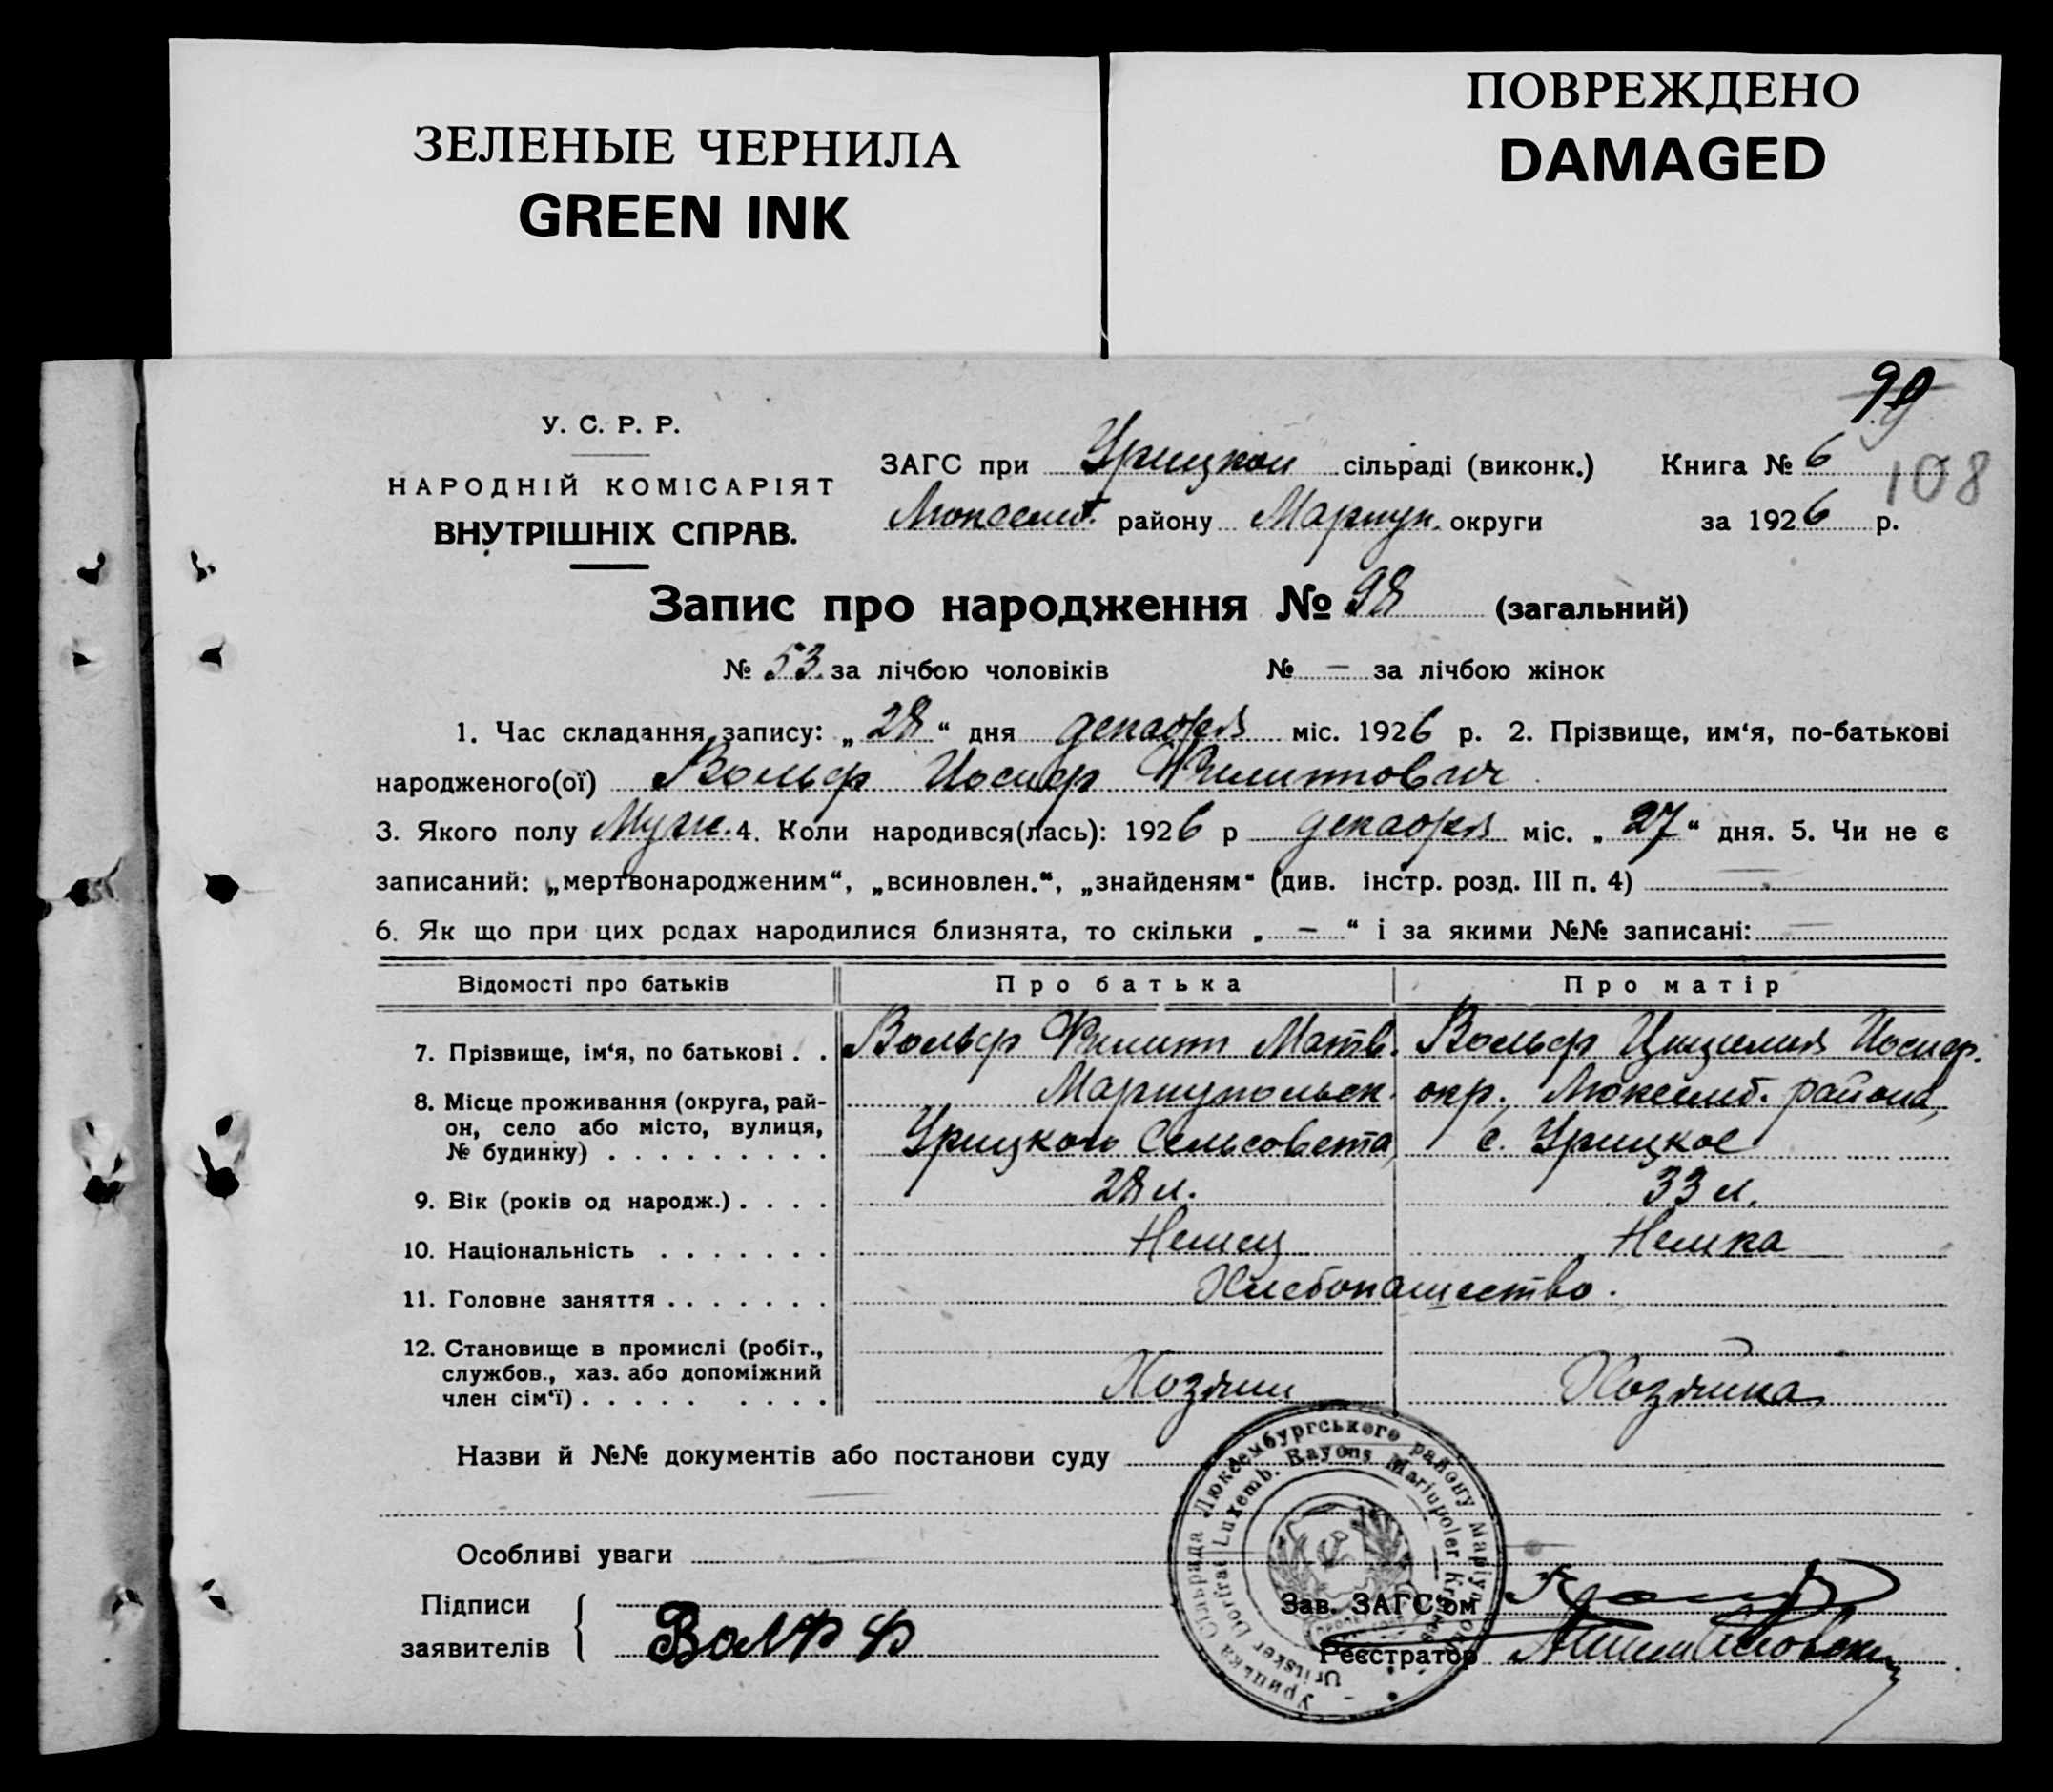 ЗЕЛЕНЫЕ ЧЕРНИЛА
GREEN INK
ПОВРЕЖДЕНО
DAMAGED
108
У. С. Р. Р.
НАРОДНІЙ КОМІСАРІЯТ
ВНУТРІШНІХ СПРАВ.
ЗАГС при Урицкой сільраді (виконк.) Книга № 6
Люксемб. району Мариуп. округи за 1926 р.
Запис про народження № 98 (загальний)
№ 53 за лічбою чоловіків № — за лічбою жінок
1. Час складання запису: „28“ дня декабря міс. 1926 р. 2. Прізвище, им‘я, по-батькові
народженого(ої) Вольф Иосиф Филиппович
3. Якого полу Муж. 4. Коли народився(лась): 1926 р декабря міс. „27“ дня. 5. Чи не є
записаний: „мертвонародженим“, „всиновлен.“, „знайденям“ (див. інстр. розд. III п. 4) —
6. Як що при цих родах народилися близнята, то скільки „—“ і за якими №№ записані: —
Відомості про батьків Про батька Про матір
7. Прізвище, ім‘я, по батькові . . Вольф Филипп Матв. Вольф Цицилия Иосиф.
8. Місце проживання (округа, рай- Мариупольск. окр. Люксемб. района,
он, село або місто, вулиця, Урицкого Сельсовета, с. Урицкое
№ будинку) . . . . . . . . .
9. Вік (років од народж.) . . . . 28 л. 33 л.
10. Національність . . . . . . . Немец Немка
11. Головне заняття . . . . . . . Хлебопашество.
12. Становище в промислі (робіт.,
службов., хаз. або допоміжний Хозяин Хозяйка
член сім‘ї) . . . . . . . . .
Назви й №№ документів або постанови суду
Особливі уваги
Підписи
заявителів Волф Ф
Зав. ЗАГС‘ом
Реєстратор
Урицька Сільрада Люксембургського району Маріупол.
Uritsker Dorfrat Luxemb. Rayons Mariupoler Kreises